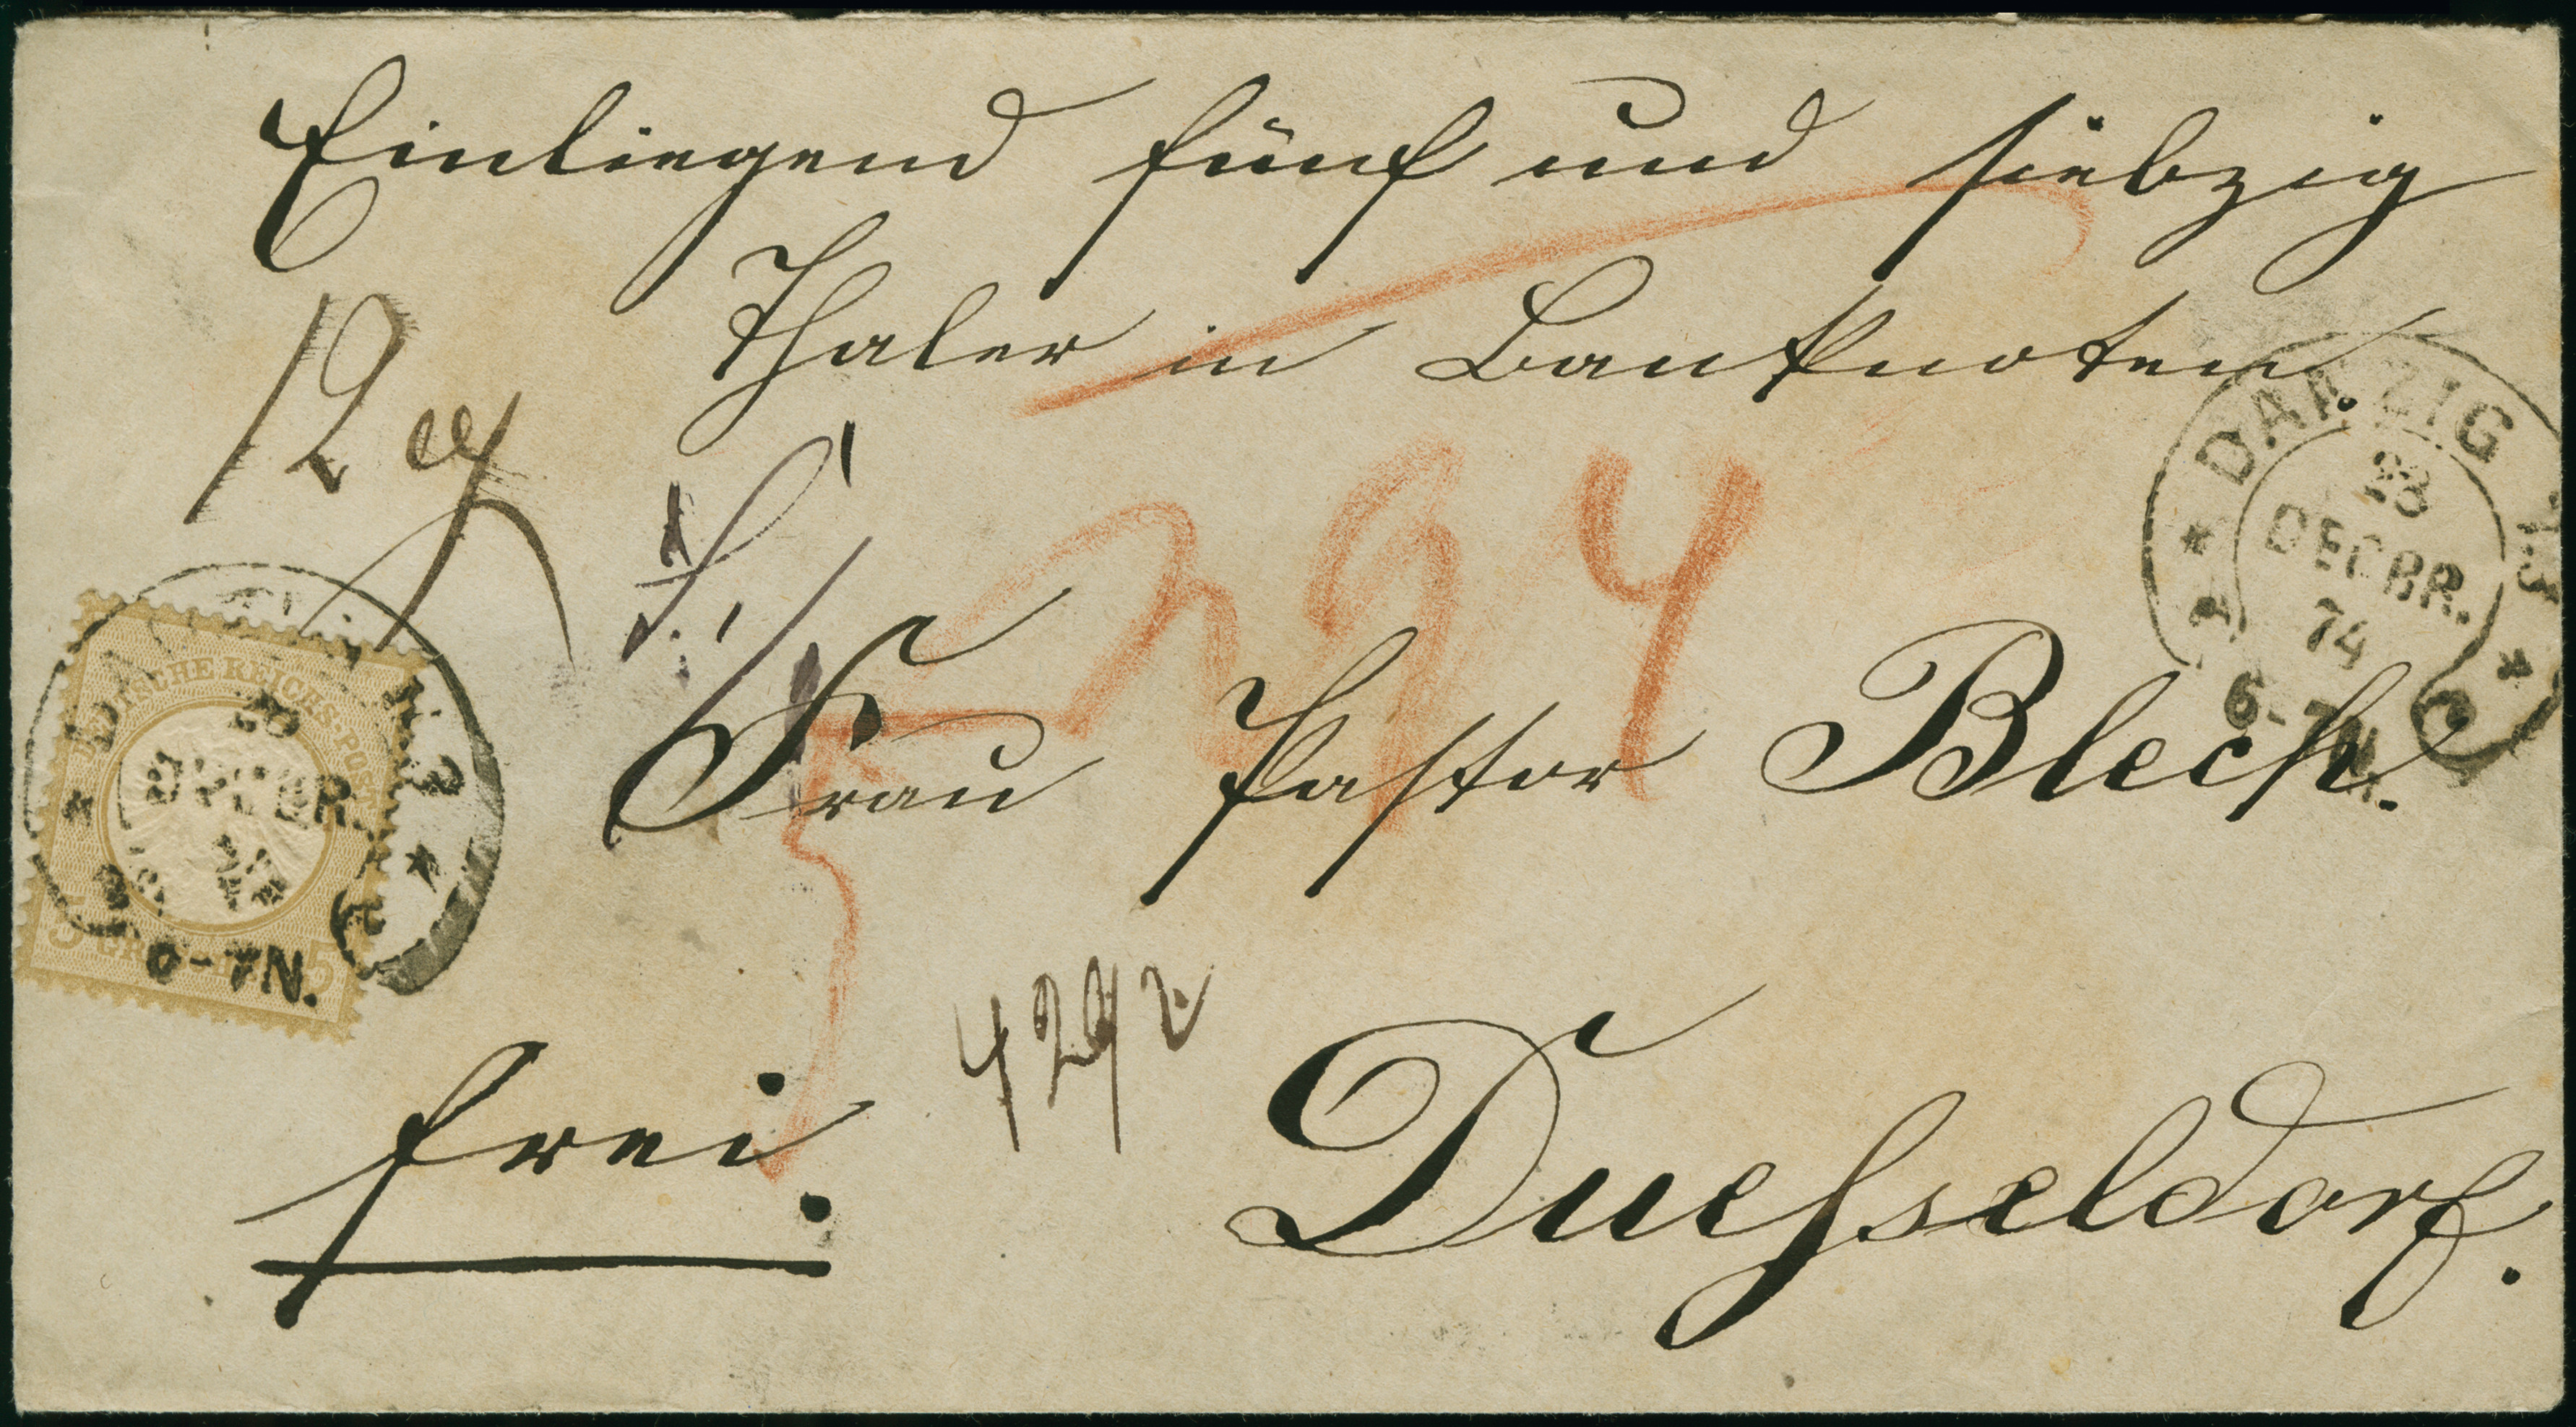 Einliegend fünf und siebzig
Thaler in Banknoten
12
DANZIG
23
DECBR.
74
6-7N.
294
Frau Pastor Blech.
DEUTSCHE REICHS-POST
DECBR.
74
6-7N.
5 GROSCHEN 5
4292
frei.
Duesseldorf.